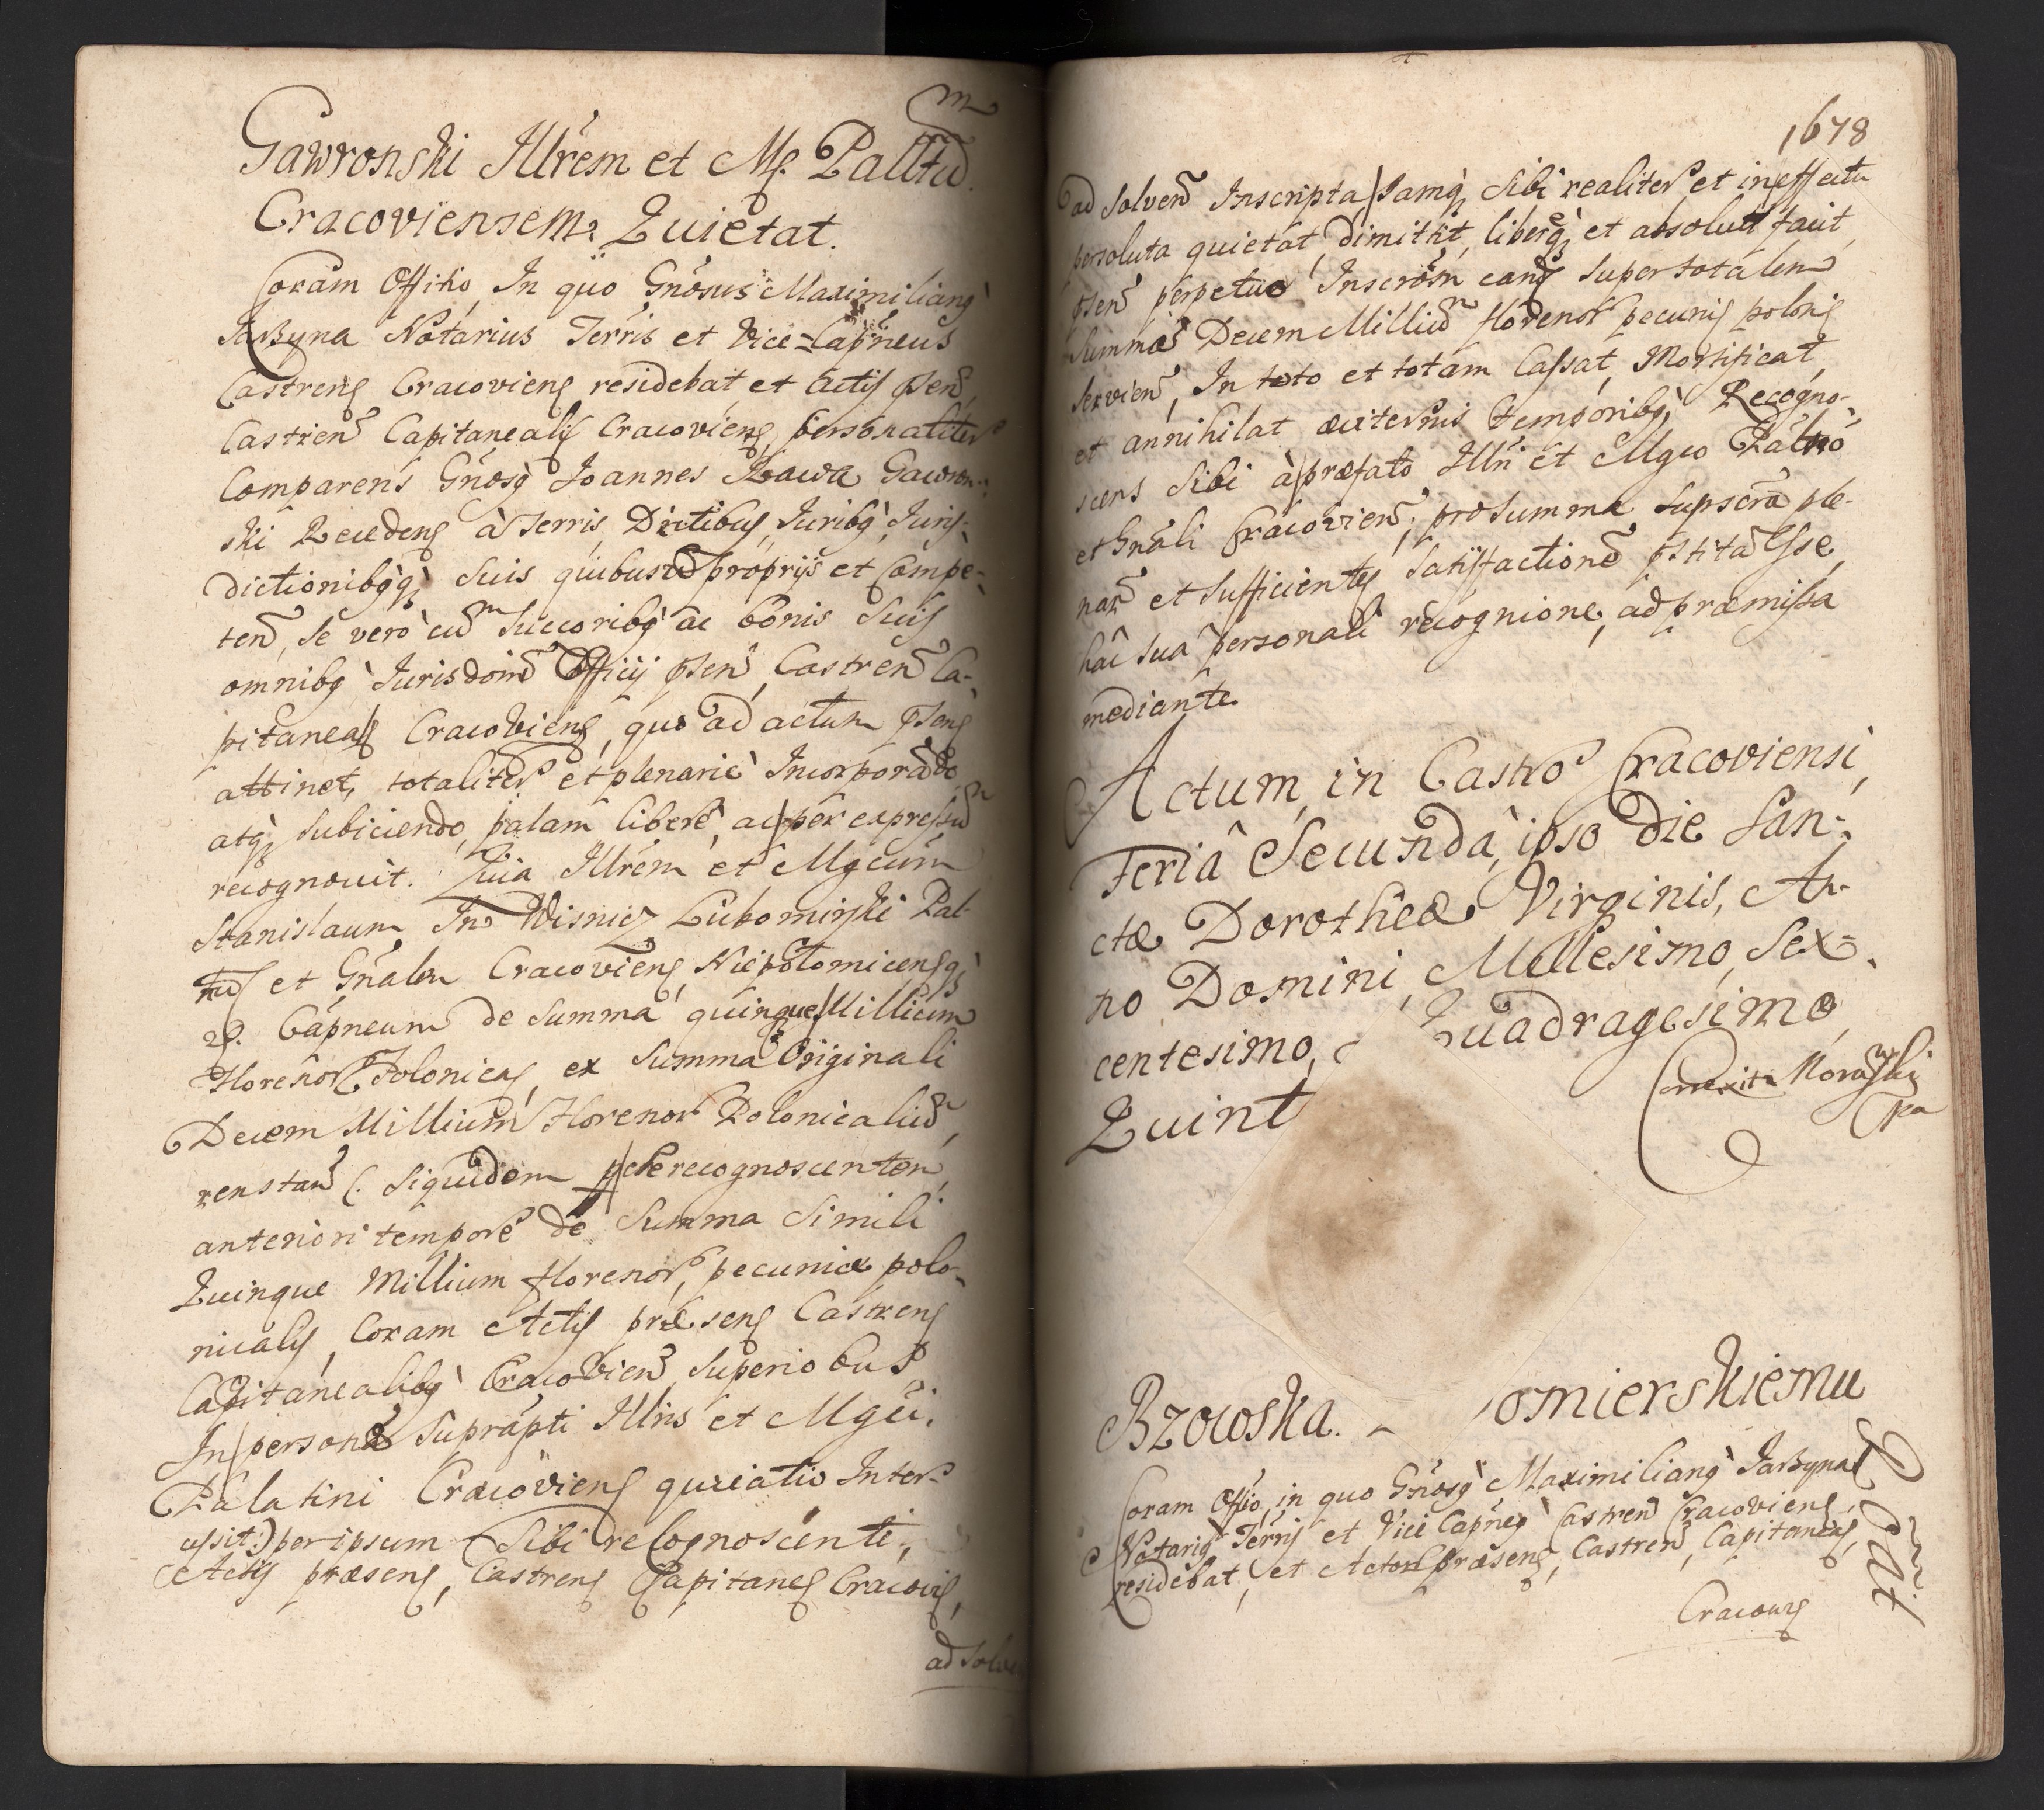 Gawronski Illrem et Mf. Palltu̅m
Cracoviensem: Quietat.
Coram Offitio, In quo Gnosus Maximilianq̀
Jarzyna Notarius Terris et Vice=Capneus
Castrenꝭ Cracovienꝭ residebat, et Actis pse̅n,
Castrien̅ Capitanealiꝭ Cracovienꝭ personaliter
Comparens Gnosq̀ Joannes Rawa Gawron:
ski Recedenꝭ à Terris, Dictibus, Juribq̀, Juris-
dictionibq̀q̀ suis quibusvis proprijs et Compe-
ten̅, Se vero cu̅m Succoribq̀ ac bonis Suis
omnibq̀ Jurisdoini Officij psen̅, Castren̅ Ca-
pitaneaꝭ Cracovienꝭ, quo ad actum psenꝭ
attinet, totaliter et plenariè Incorporādo
atq̀ Subiciendo, palam liberè, ac per expressu̅m
recognovit. Quia Illrem et Mgcum
Stanislaum In Wisnicz Lubomirski Pal-
tuꝭ et Gnalem Cracovienꝭ Niepolomicensꝭq̀
&. Capneum de Summa quinque Millium
Florenor Polonicaꝭ, ex Summa Originali
Decem Millium Florenor Polonicaliu̅m,
renstan̅ (. Siquidem p se recognoscenten̅,
anteriori tempore de Summa Simili
Quinque Millium florenor, pecuniæ polo-
nicalꝭ, Coram Actꝭ præsenꝭ Castrenꝭ
Capitanealibq̀ Cracovien̅, Superiobus
In persona Suprapti Illris et Mgci.
Palatini Cracovienꝭ quietatio Inter-
cessit:) per ipsum Sibi recognoscenti,
Actꝭ præsenꝭ, Castrenꝭ Capitaneꝭ Cracovꝭ,
ad Solven
1678
ad Solven̅ Inscripta Jamq̀ Sibi realiter et in effectu
persoluta quietat, dimittit, liberq̀ et absolut facit,
psen̅ perpetuo Inscrōm eanꝭ super totalem
Summa̅ Decem Milliu̅m florenor pecuniꝭ poloniꝭ
servien̅, In toto et totam Cassat, Mortificat,
et annihilat æviternis temporibq̀, Recogno-
scens Sibi à præfato Illri et Mgco Paltno
et Gnali Cracovien̅, pro Summa Supscra ple-
nar̅ et Sufficientꝭ Satisfactione̅ pstita̅ Esse,
hac sua personali recognione, ad præmissa
mediante.
Actum in Castro Cracoviensi,
Feriâ Secundâ, ipso die San-
ctæ Dorotheæ Virginis, An-
no Domini Millesimo, Sex-
centesimo, Quadragesimo
Quint
Correxit Morawski
pa
Brzowska. omierskiemu
Coram Offio, in quo Gnosq̀ Maximilianq̀ Jarzyna
Notariq̀ Terrꝭ et Vice Capneq̀ Castren̅ Cracovienꝭ,
residebat, et Actor præsenꝭ, Castren̅, Capitaneaꝭ,
Cracovꝭ